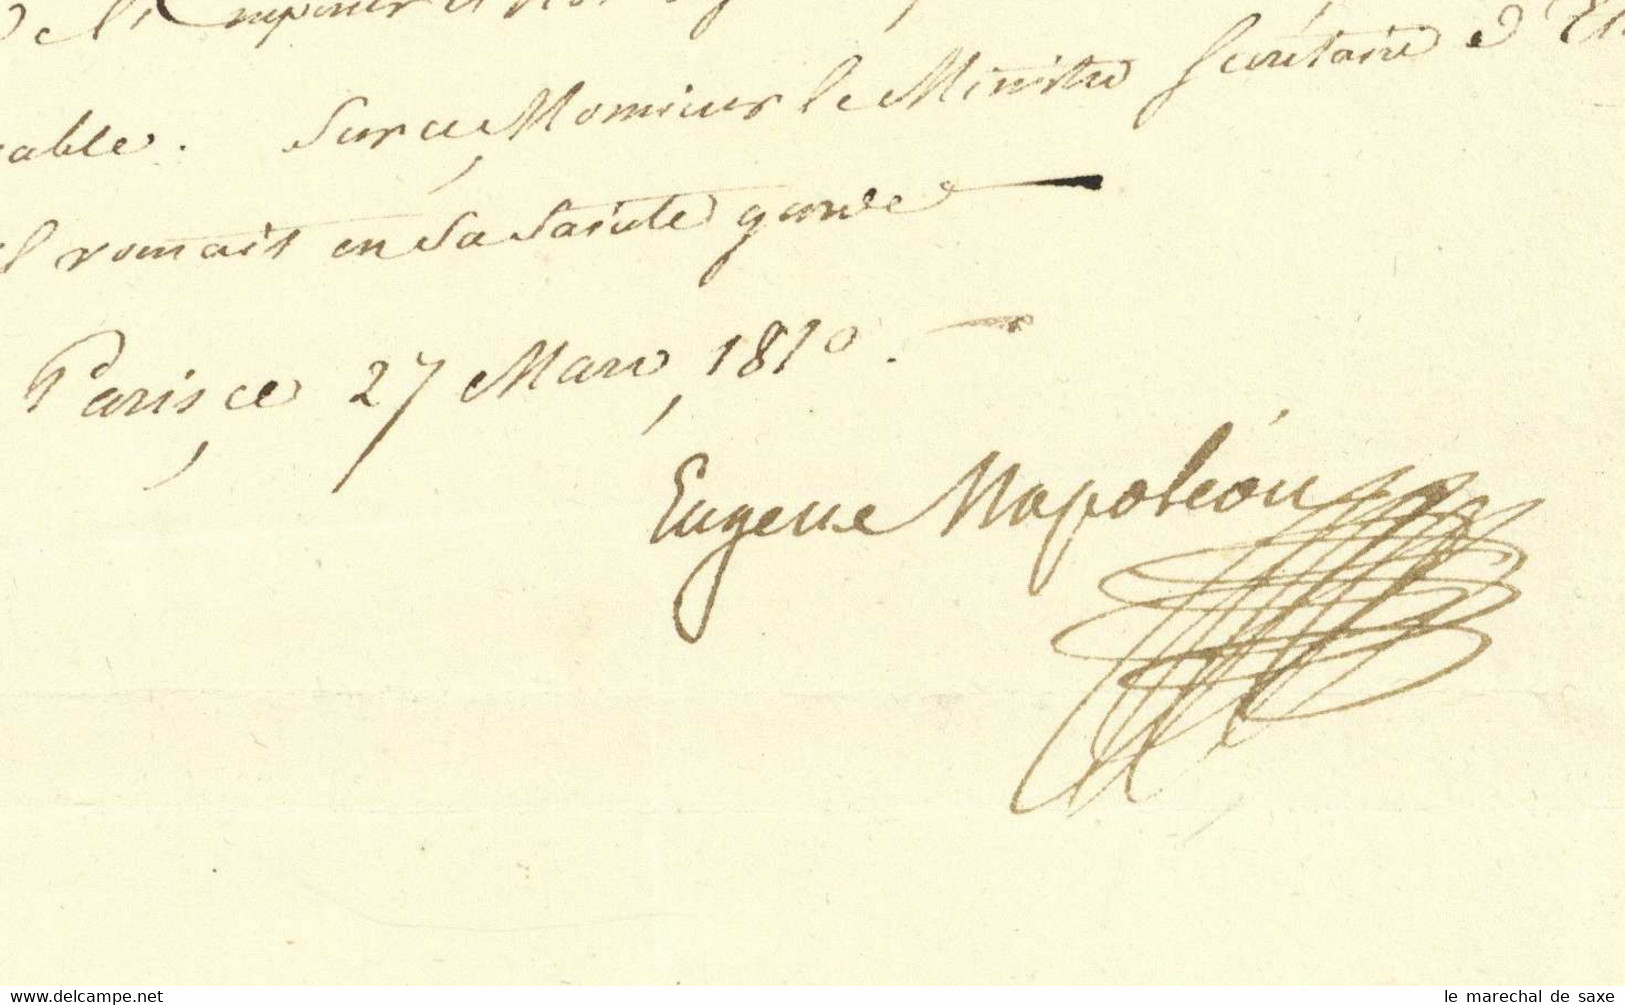 de l'Empereur et
able. Sur ce, Monsieur le Ministre Secrétaire d'Et
vous ait en sa Sainte garde
Paris, ce 27 Mars, 1810.
Eugene Napoléon
www.delcampe.net
le marechal de saxe